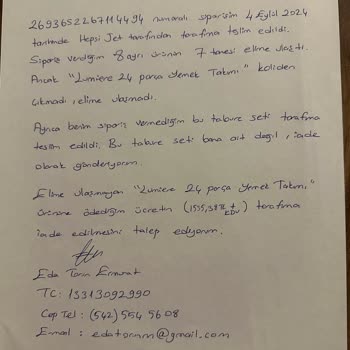 2693652267114494 numaralı siparişim 4 Eylül 2024
tarihinde Hepsi Jet tarafından tarafıma teslim edildi.
Sipariş verdiğim 8 ayrı ürünün 7 tanesi elime ulaştı.
Ancak "Lumiere 24 parça Yemek Takımı" koliden
çıkmadı, elime ulaşmadı.
Ayrıca benim sipariş vermediğim bu tabure seti tarafıma
teslim edildi. Bu tabure seti bana ait değil, iade
olarak gönderiyorum.
Elime ulaşmayan "Lumiere 24 parça Yemek Takımı"
ürününe ödediğim ücretin tarafıma
iade edilmesini talep ediyorum.
Eda Torun
TC: 13313092990
Cep Tel: (542) 554 5608
E-mail: edatornm@gmail.com